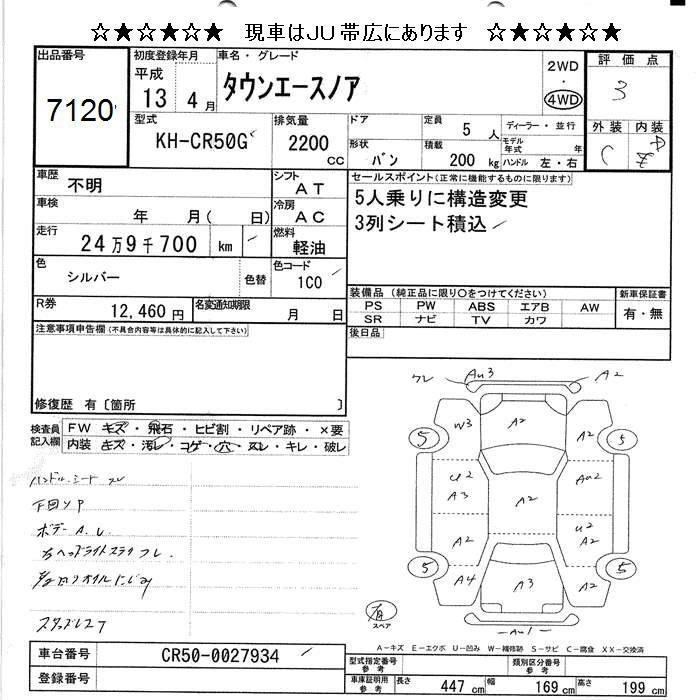 ☆★☆★☆★ 現車はJU帯広にあります ☆★☆★☆★
出品番号
7120
初度登録年月
平成
13 4月
車名・グレード
タウンエースノア
2WD
・
4WD
評価点
3
外装 内装
C D
E
型式
KH-CR50G
排気量
2200 CC
ドア
形状
バン
定員
5人
積載
200 kg
ディーラー・並行
モデル年式 年
ハンドル 左・右
車歴
不明
車検
年 月( 日)
走行
24万9千700 km
色
シルバー 色替
シフト
AT
冷房
AC
燃料
軽油
色コード
1C0
R券
12,460円
名変通知期限
月 日
セールスポイント(正常に機能するものに限ります)
5人乗りに構造変更
3列シート積込
装備品(純正品に限り○をつけてください)
PS PW ABS エアB AW
SR ナビ TV カワ
新車保証書
有・無
後日品
注意事項申告欄(不具合内容等は具体的に記入して下さい)
修復歴 有〔箇所 〕
検査員記入欄
FW キズ・飛石・ヒビ割・リペア跡・×要
内装 キズ・汚レ・コゲ・穴・スレ・キレ・破レ
ハンドル.シート スレ
下回りP
ボデー A.U.
右ヘッドライトステイ ワレ.
スタッドレス7
ワレ AU3 A2
W3 A2 A2
5 5
U2 A3 A2 AU2
U2 A2
A2
5 5
A4 A3 A2
AU1
有
スペア
A-キズ E-エクボ U-凹み W-補修跡 S-サビ C-腐食 XX-交換済
車台番号
CR50-0027934
登録番号
型式指定番号
参考
類別区分番号
参考
車庫証明用
参考
長さ 447cm 幅 169cm 高さ 199cm